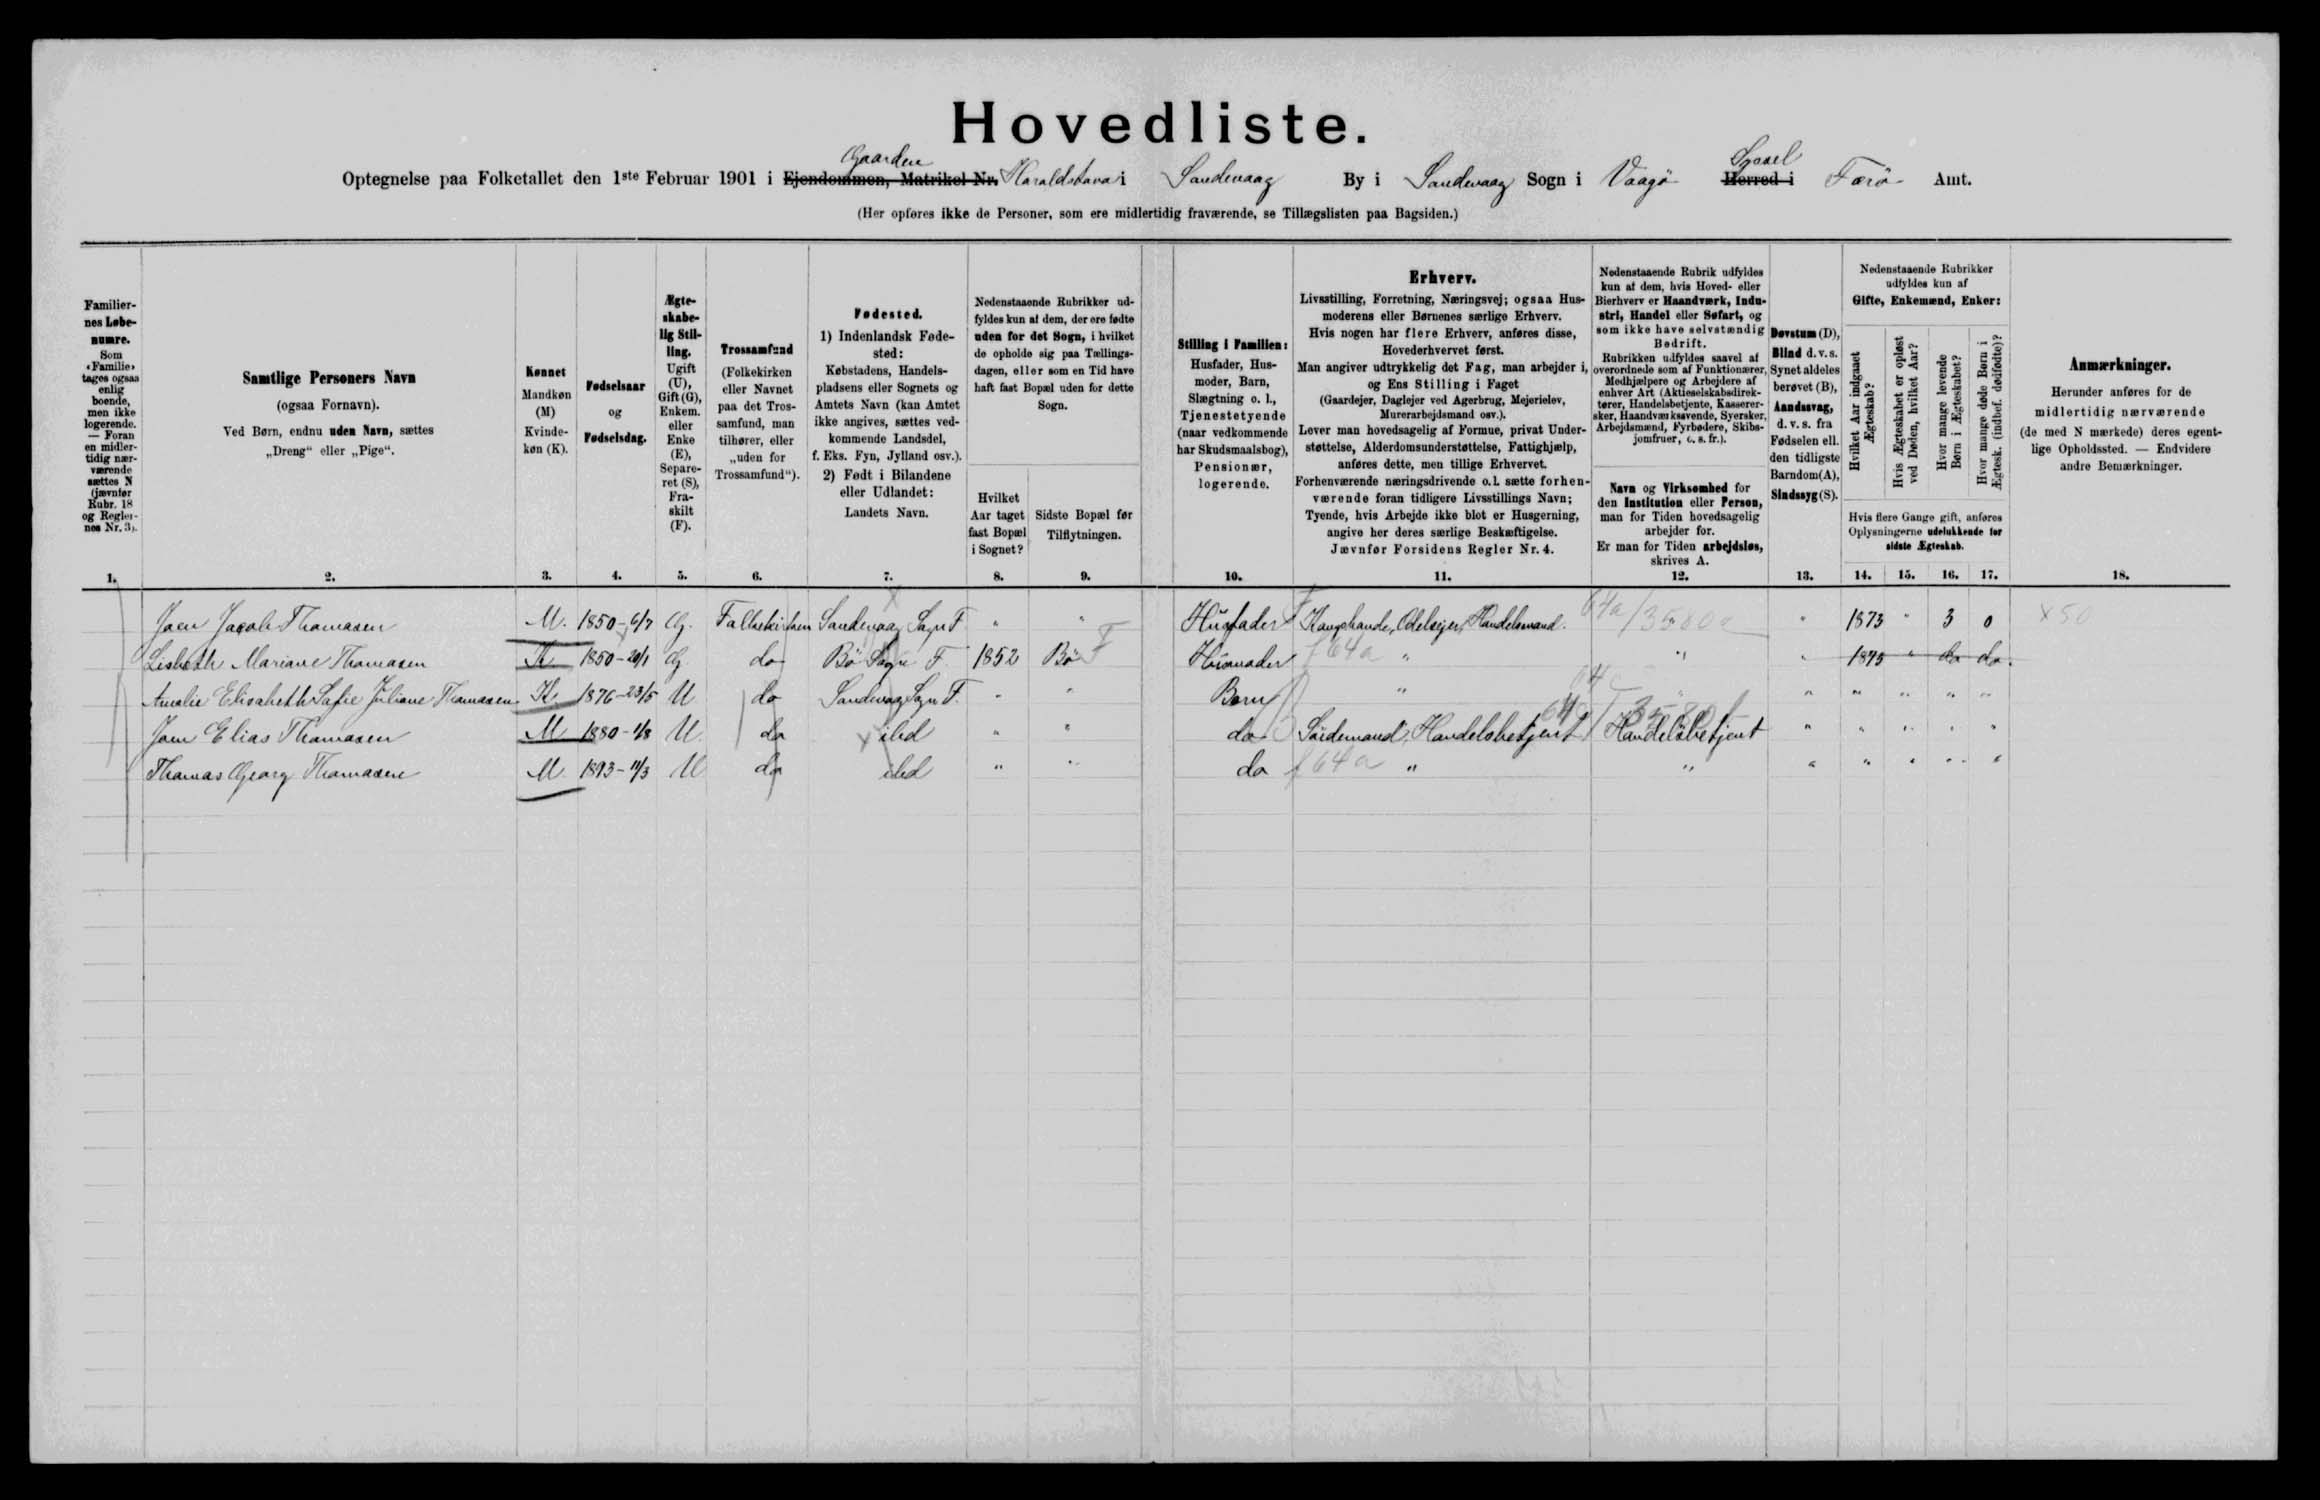 Hovedliste.
Gaarden
Syssel
Optegnelse paa Folketallet den 1ste Februar 1901 i Ejendommen, Matrikel Nr. Haraldstova i Sandevaag By i Sandevaag Sogn i Vaagö Herred i Færö Amt.
(Her opføres ikke de Personer, som ere midlertidig fraværende, se Tillægslisten paa Bagsiden.)
Familiernes Løbenumre.
Som «Familie» tages ogsaa enlig boende, men ikke logerende. — Foran en midlertidig nærværende sættes N (jævnfør Rubr. 18 og Reglernes Nr. 3).
1.
Samtlige Personers Navn
(ogsaa Fornavn).
Ved Børn, endnu uden Navn, sættes
„Dreng“ eller „Pige“.
2.
Kønnet
Mandkøn (M)
Kvindekøn (K).
3.
Fødselsaar
og
Fødselsdag.
4.
Ægteskabelig Stilling.
Ugift (U), Gift (G), Enkem. eller Enke (E), Separeret (S), Fraskilt (F).
5.
Trossamfund
(Folkekirken eller Navnet paa det Trossamfund, man tilhører, eller „uden for Trossamfund“).
6.
Fødested.
1) Indenlandsk Fødested:
Købstadens, Handelspladsens eller Sognets og Amtets Navn (kan Amtet ikke angives, sættes vedkommende Landsdel, f. Eks. Fyn, Jylland osv.).
2) Født i Bilandene eller Udlandet:
Landets Navn.
7.
Nedenstaaende Rubrikker udfyldes kun af dem, der ere fødte uden for det Sogn, i hvilket de opholde sig paa Tællingsdagen, eller som en Tid have haft fast Bopæl uden for dette Sogn.
Hvilket Aar taget fast Bopæl i Sognet?
8.
Sidste Bopæl før Tilflytningen.
9.
Stilling i Familien:
Husfader, Husmoder, Barn, Slægtning o. l., Tjenestetyende (naar vedkommende har Skudsmaalsbog), Pensionær, logerende.
10.
Erhverv.
Livsstilling, Forretning, Næringsvej; ogsaa Husmoderens eller Børnenes særlige Erhverv.
Hvis nogen har flere Erhverv, anføres disse, Hovederhvervet først.
Man angiver udtrykkelig det Fag, man arbejder i, og Ens Stilling i Faget
(Gaardejer, Daglejer ved Agerbrug, Mejerielev, Murerarbejdsmand osv.).
Lever man hovedsagelig af Formue, privat Understøttelse, Alderdomsunderstøttelse, Fattighjælp, anføres dette, men tillige Erhvervet.
Forhenværende næringsdrivende o. l. sætte forhenværende foran tidligere Livsstillings Navn; Tyende, hvis Arbejde ikke blot er Husgerning, angive her deres særlige Beskæftigelse.
Jævnfør Forsidens Regler Nr. 4.
11.
Nedenstaaende Rubrik udfyldes kun af dem, hvis Hoved- eller Bierhverv er Haandværk, Industri, Handel eller Søfart, og som ikke have selvstændig Bedrift.
Rubrikken udfyldes saavel af overordnede som af Funktionærer, Medhjælpere og Arbejdere af enhver Art (Aktieselskabsdirektører, Handelsbetjente, Kasserersker, Haandværkssvende, Syersker, Arbejdsmænd, Fyrbødere, Skibsjomfruer, o. s. fr.).
Navn og Virksomhed for den Institution eller Person, man for Tiden hovedsagelig arbejder for.
Er man for Tiden arbejdsløs, skrives A.
12.
Døvstum (D), Blind d. v. s. Synet aldeles berøvet (B), Aandssvag, d. v. s. fra Fødselen ell. den tidligste Barndom (A), Sindssyg (S).
13.
Nedenstaaende Rubrikker udfyldes kun af
Gifte, Enkemænd, Enker:
Hvilket Aar indgaaet Ægteskab?
Hvis Ægteskabet er opløst ved Døden, hvilket Aar?
Hvor mange levende Børn i Ægteskabet?
Hvor mange døde Børn i Ægtesk. (indbef. dødfødte)?
Hvis flere Gange gift, anføres Oplysningerne udelukkende for sidste Ægteskab.
14. 15. 16. 17.
Anmærkninger.
Herunder anføres for de midlertidig nærværende (de med N mærkede) deres egentlige Opholdssted. — Endvidere andre Bemærkninger.
18.
Joen Jacob Thomasen M. 1850-6/7 G. Folkekirken Sandevaag Sogn F " " Husfader Odelsejer, Handelsmand. 64a/3580a " 1873 " 3 0 x50
Lisbeth Mariane Thomasen K 1850-20/1 G do Bö Sogn F. 1852 Bö F Husmoder f64a " " " 1873 " do do.
Amalie Elisabeth Sofie Juliane Thomasen K. 1876-23/5 U do Sandevaag Sogn F. " " Barn " " " " " " "
Joen Elias Thomasen M 1880-1/8 U. do ibd " " do Handelsbetjent Handelsbetjent " " " " "
Thomas Georg Thomasen M. 1893-11/3 U do ibd " " do f64a " " " " " " "